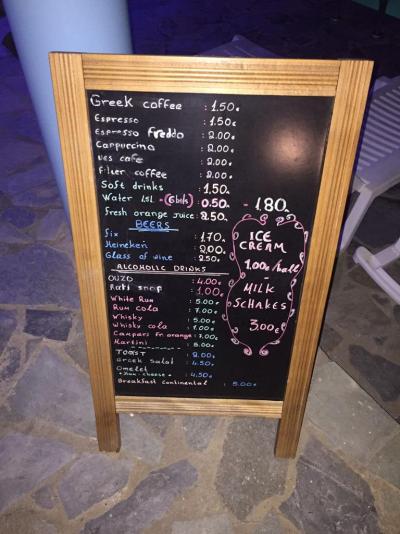 Greek coffee : 1.50.
Espresso : 1.50€
Espresso Freddo : 2.00€
Cappuccino : 2.00€
Nes cafe : 2.00€
Filter coffee : 2.00€
Soft drinks : 1.50.
Water 1.5L - : 0.50 - 1.80.
fresh orange juice: 2.50.
BEERS
fix : 1.70.
Heineken : 2.00.
Glass of wine : 2.50.
ALCOHOLIC DRINKS
OUZO : 4.00€
Raki snap : 1.00€
White Rum : 5.00€
Rum cola : 7.00€
Whisky : 5.00€
Whisky cola : 7.00€
Campari Fr. orange : 7.00€
Martini : 5.00€
TOAST : 2.00€
Greek Salat : 4.50€
Omelet
+ Ham - cheese + : 4.50€
Breakfast Continental : 5.00€
ICE
CREAM
1.00€/ball
MILK
SCHAKES
3.00€